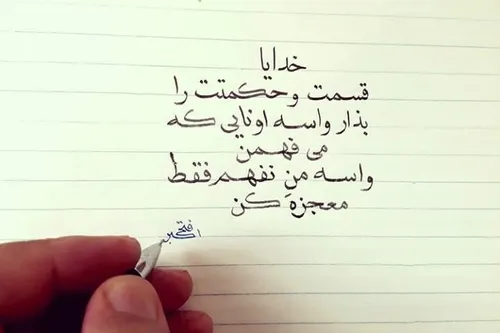 خدایا
قسمت و حکمتت را
بذار واسه اونایی که
می فهمن
واسه منِ نفهم فقط
معجزه کن